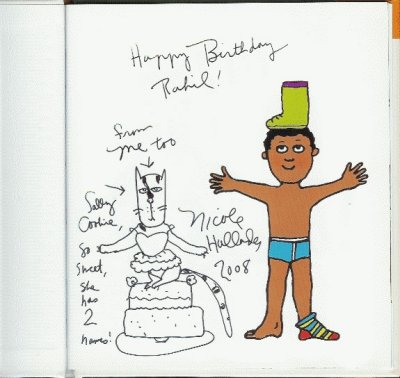 Happy Birthday
Rahil!
from
me too
Sally
Cookie,
so
sweet,
she
has
2
names!
Nicole
Hollander
2008